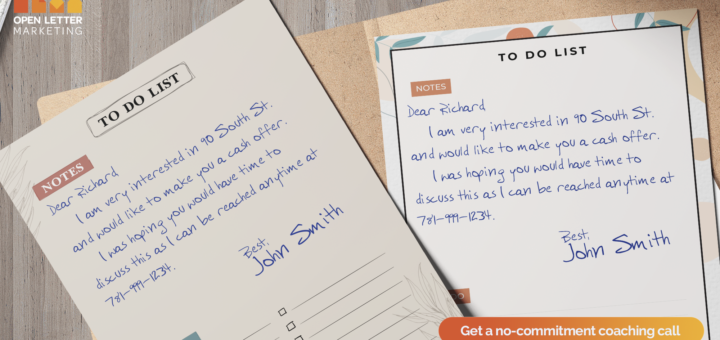 OPEN LETTER
MARKETING
TO DO LIST
NOTES
Dear Richard
I am very interested in 90 South St.
and would like to make you a cash offer.
I was hoping you would have time to
discuss this as I can be reached anytime at
781-999-1234.
Best,
John Smith
TO DO LIST
NOTES
Dear Richard
I am very interested in 90 South St.
and would like to make you a cash offer.
I was hoping you would have time to
discuss this as I can be reached anytime at
781-999-1234.
Best,
John Smith
Get a no-commitment coaching call